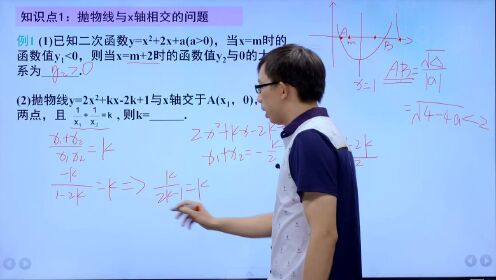 知识点1：抛物线与x轴相交的问题
例1 (1)已知二次函数y=x²+2x+a(a>0)，当x=m时的
函数值y₁<0，则当x=m+2时的函数值y₂与0的大
系为 y₂>0 .
(2)抛物线y=2x²+kx-2k+1与x轴交于A(x₁，0)，
两点，且 1/x₁ + 1/x₂ =k , 则k=_____.
(x₁+x₂)/(x₁x₂)=k
-k/(1-2k)=k => k/(2k-1)=k
2x²+k
x₁+x₂=-k/2
A m B
AB=√Δ/|a|
=√(4-4a)<2